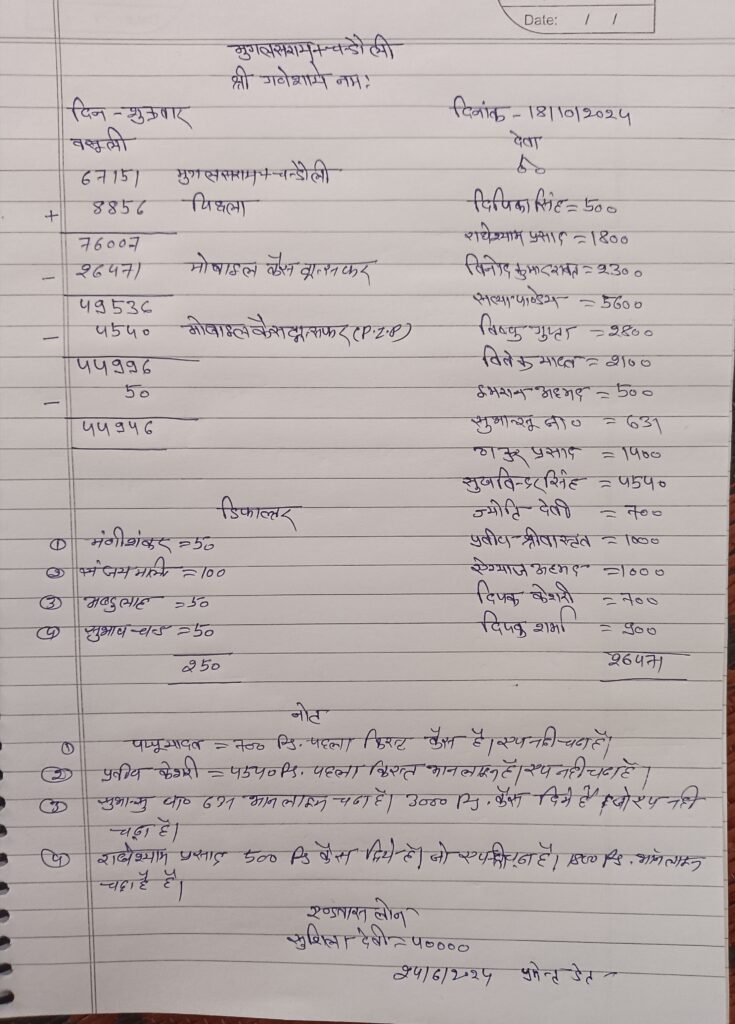 Date: / /
मुगलसराय-चन्दौली
श्री गणेशाये नमः
दिन - शुक्रवार
दिनांक - 18/10/2024
वसूली
देवा
67151 मुगलसराय-चन्दौली
+ 8856 पिछला
दिपिका सिंह = 500
76007
राधेश्याम प्रसाद = 1800
- 26471 मोबाइल कैस ट्रान्सफर
विनोद कुमार रावत = 2300
49536
सत्या पाण्डेय = 5600
- 4540 मोबाइल कैस ट्रान्सफर (P.Z.P)
विष्णु गुप्ता = 2800
44996
विवेक यादव = 2100
- 50
इमरान अहमद = 500
44946
सुभान्सू = 631
ठाकुर प्रसाद = 1400
सुखविन्दर सिंह = 4540
डिफाल्टर
ज्योति देवी = 700
① मंगीशंकर = 50
प्रवीय श्रीवास्तव = 1000
② संजय माली = 100
अहमद = 1000
③ अबदुलाह = 50
दिपक केशरी = 700
④ सुभाष चन्द = 50
दिपक शर्मा = 900
250
26471
नोट
① पप्पू यादव = 700 Rs. पहला किस्ट कैस है। एप नही चढा है।
② प्रवीय केशरी = 4540 Rs. पहला किस्त आनलाइन है। एप नही चढा है।
③ सुभान्सु 671 आनलाइन चढा है। 3000 Rs. कैस दिये है जो एप नही
चढ़ा है।
④ राधेश्याम प्रसाद 500 Rs कैस दिये है। जो एप है। 1800 Rs. आनलाइन
चढा है है।
एडवांस लोन
सुशिला देवी = 40000
24/6/2024 डेट -